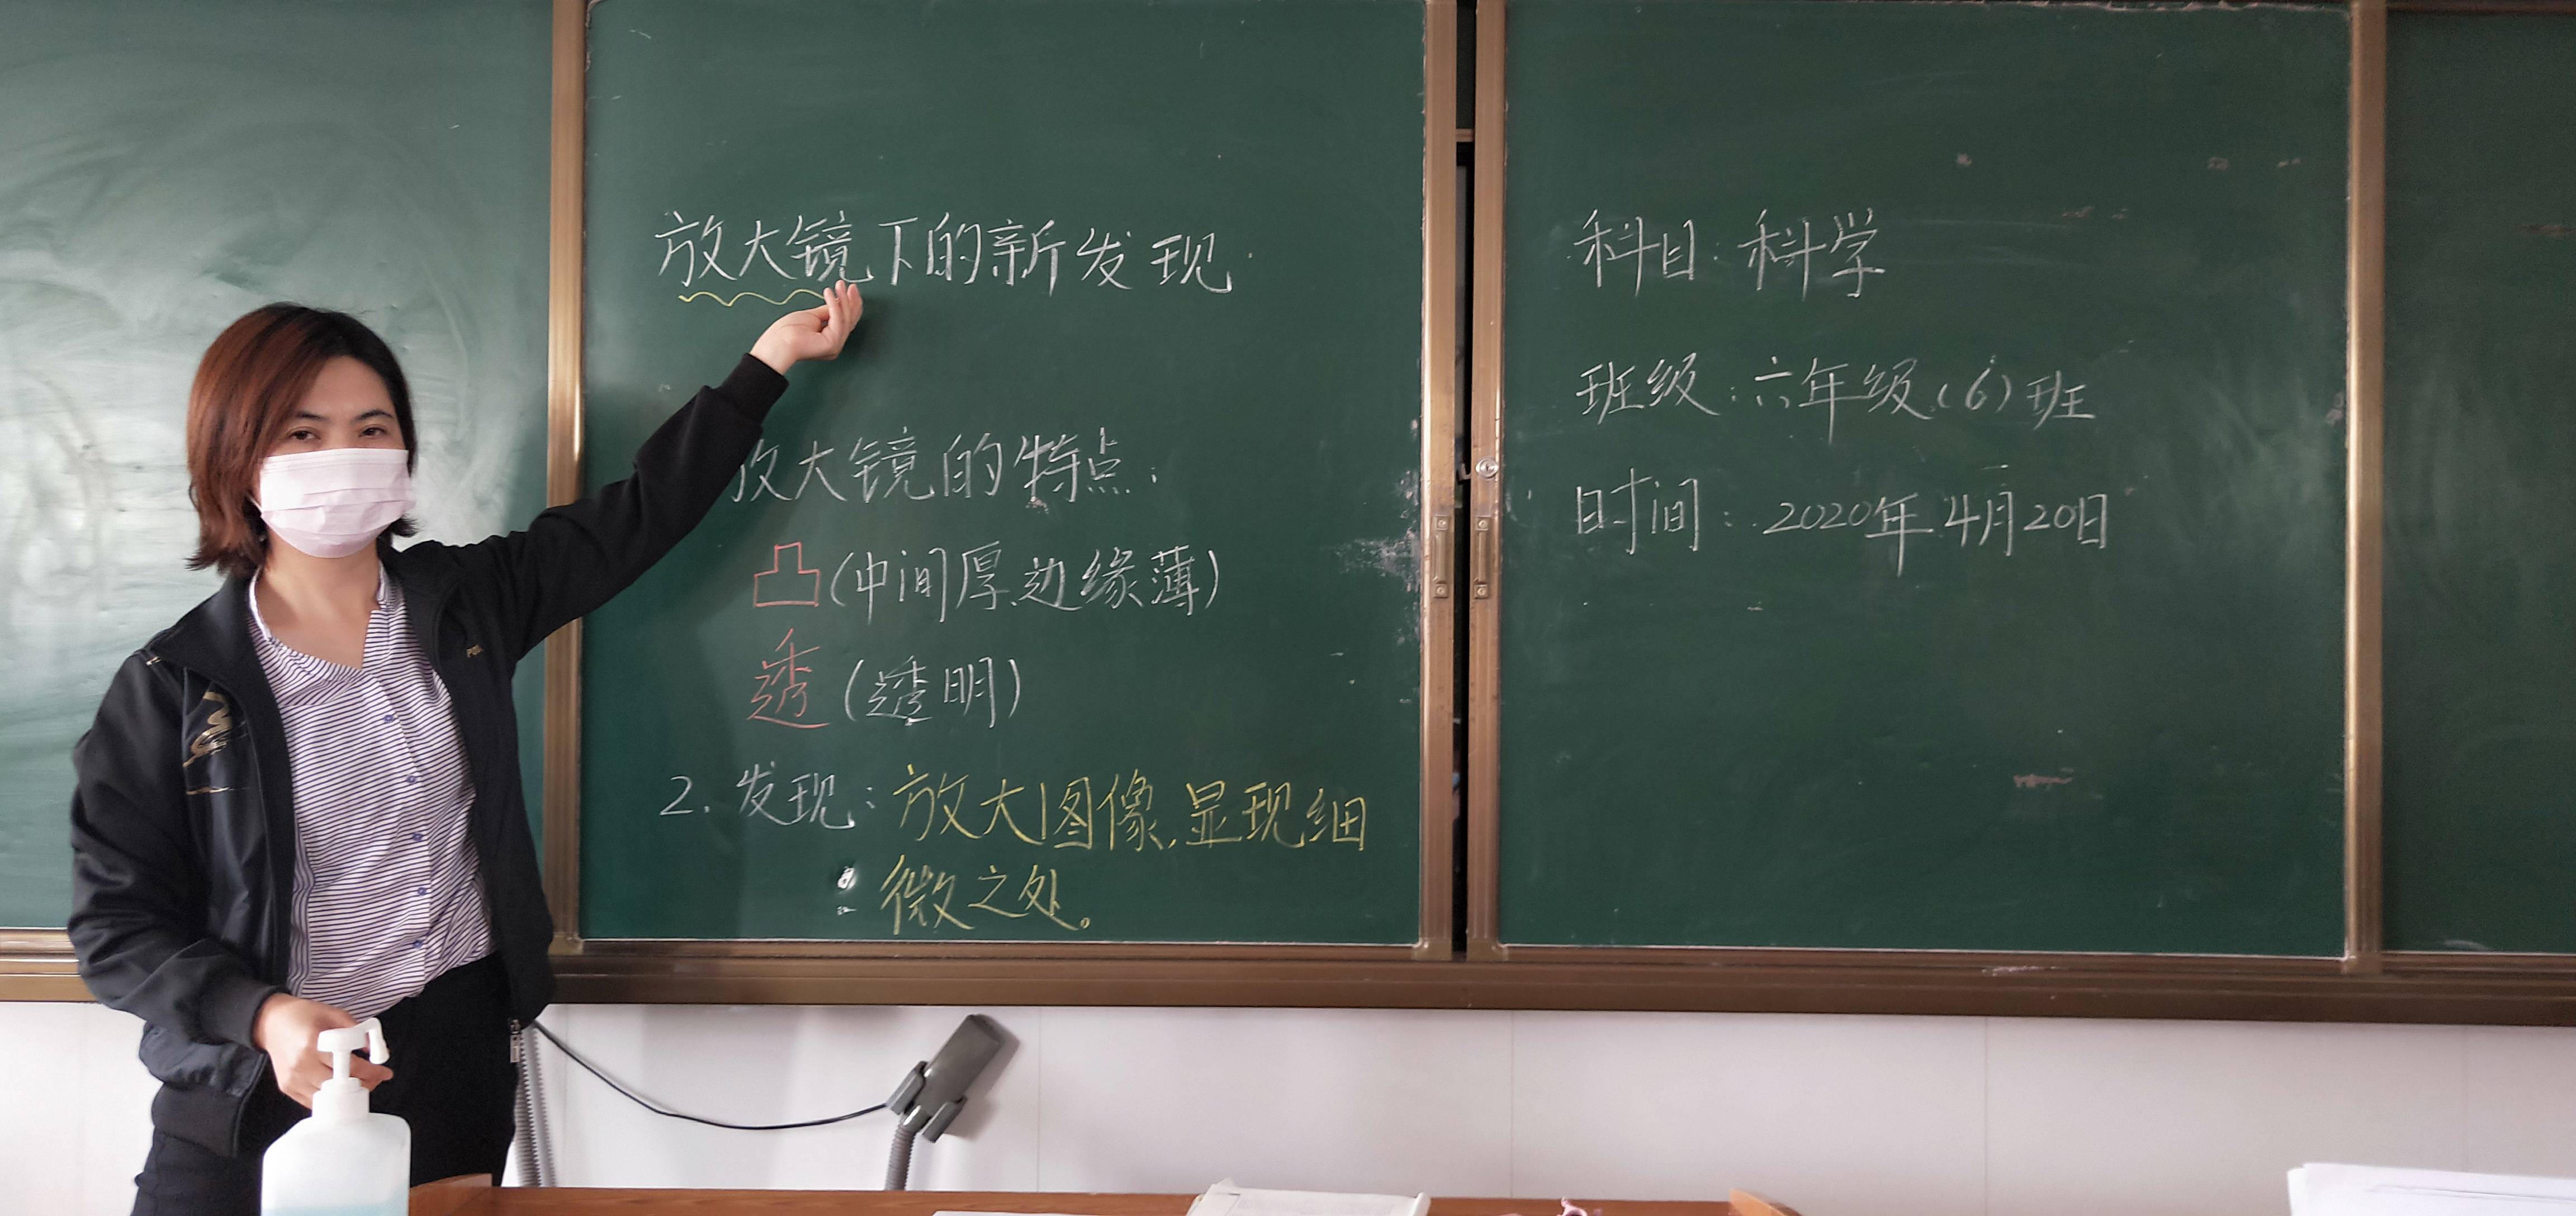 放大镜下的新发现
放大镜的特点:
凸(中间厚、边缘薄)
透(透明)
2. 发现:放大图像,显现细
微之处。
科目:科学
班级:六年级(6)班
时间:2020年4月20日